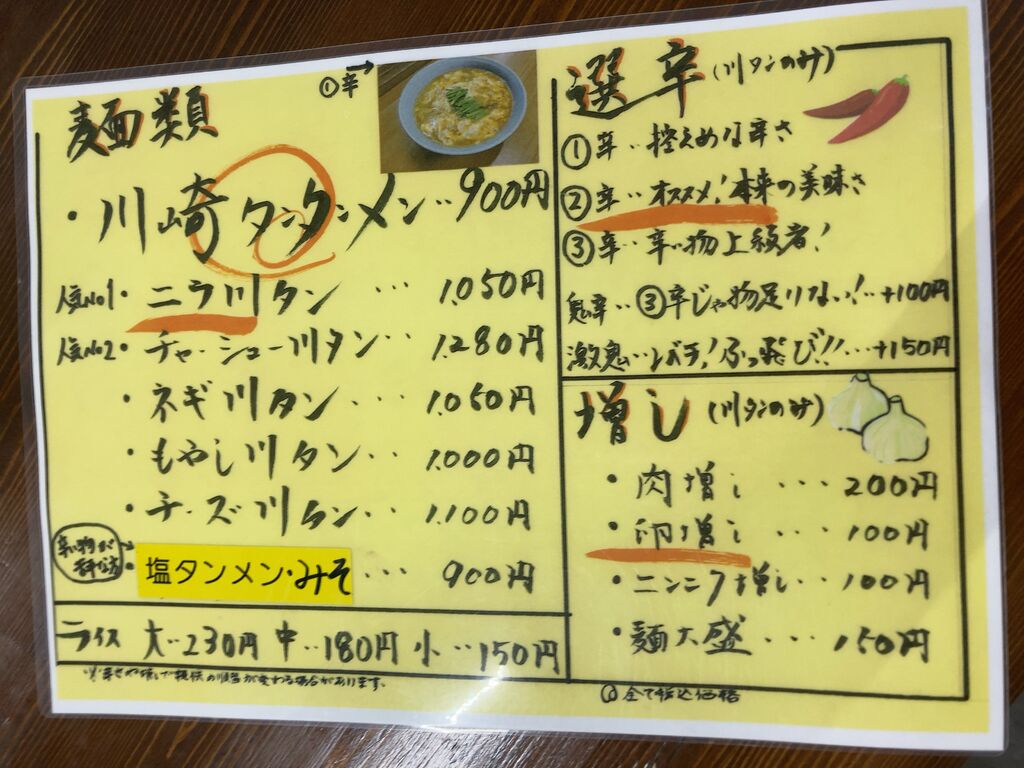 ①辛→
麺類
・川崎タンタンメン‥900円
人気No1・ニラ川タン … 1.050円
人気No2・チャーシュー川タン … 1.280円
・ネギ川タン‥ 1.050円
・もやし川タン‥ 1.000円
・チーズ川タン‥ 1.100円
辛い物が
苦手な方→
・塩タンメン・みそ … 900円
ライス 大‥230円 中‥180円 小‥150円
※辛さや増しで提供の順番が変わる場合があります。
選辛(川タンのみ)
①辛‥控えめな辛さ
②辛‥オススメ!本来の美味さ
③辛‥辛い物上級者!
鬼辛‥③辛じゃ物足りない!‥+100円
激鬼…レバチ!ぶっ飛び!!…+150円
増し(川タンのみ)
・肉増し … 200円
・卵増し … 100円
・ニンニク増し‥ 100円
・麺大盛 … 150円
全て税込価格